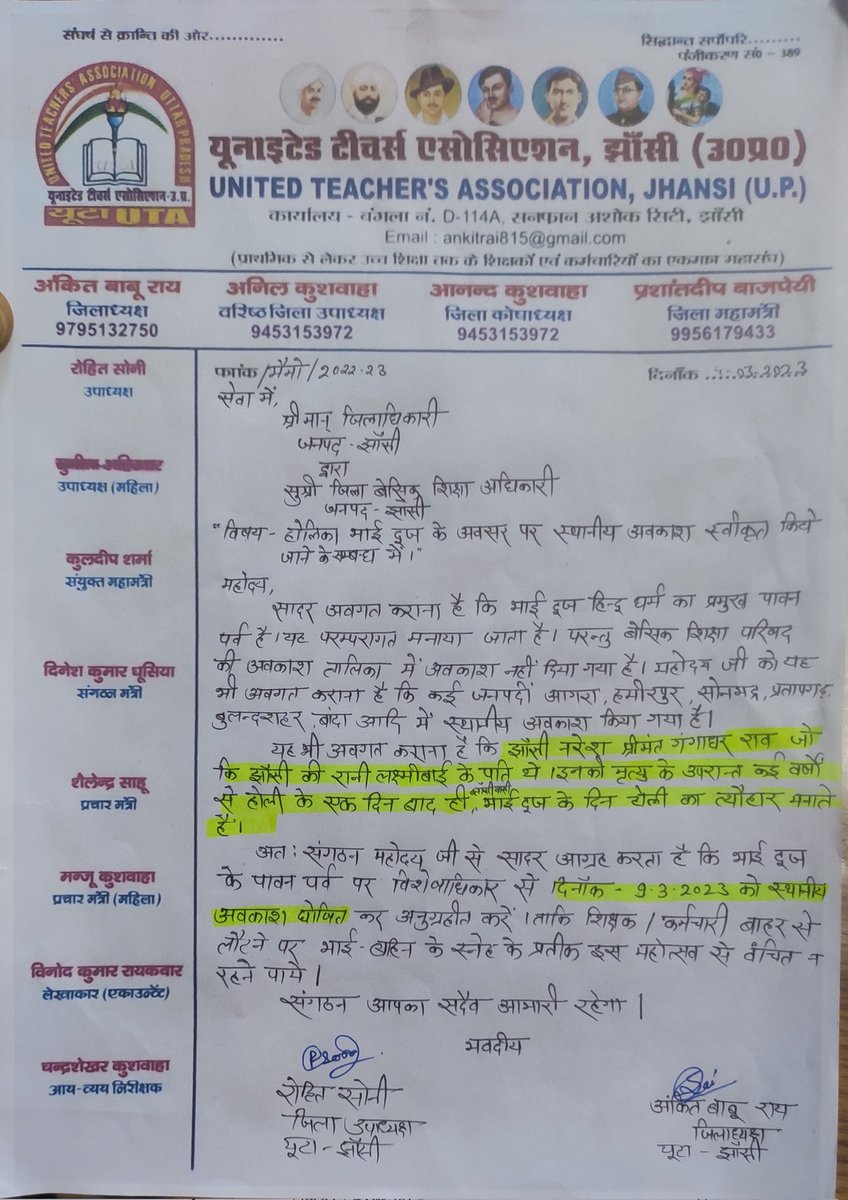 संघर्ष से क्रान्ति की ओर.............
सिद्धान्त सर्पोपरि.........
पंजीकरण सं० - 389
UNITED TEACHERS' ASSOCIATION UTTAR PRADESH
यूनाइटेड टीचर्स एसोसिएशन-उ.प्र.
यूटा UTA
यूनाइटेड टीचर्स एसोसिएशन, झाँसी (उ0प्र0)
UNITED TEACHER'S ASSOCIATION, JHANSI (U.P.)
कार्यालय - बंगला नं. D-114A, सनफान अशोक सिटी, झाँसी
Email : ankitrai815@gmail.com
(प्राथमिक से लेकर उच्च शिक्षा तक के शिक्षकों एवं कर्मचारियों का एकमात्र महासंघ)
अंकित बाबू राय
जिलाध्यक्ष
9795132750
अनिल कुशवाहा
वरिष्ठ जिला उपाध्यक्ष
9453153972
आनन्द कुशवाहा
जिला कोषाध्यक्ष
9453153972
प्रशांतदीप बाजपेयी
जिला महामंत्री
9956179433
रोहित सोनी
उपाध्यक्ष
उपाध्यक्ष (महिला)
कुलदीप शर्मा
संयुक्त महामंत्री
दिनेश कुमार धूसिया
संगठन मंत्री
शैलेन्द्र साहू
प्रचार मंत्री
मन्जू कुशवाहा
प्रचार मंत्री (महिला)
विनोद कुमार रायकवार
लेखाकार (एकाउन्टेंट)
चन्द्रशेखर कुशवाहा
आय-व्यय निरीक्षक
क्रांक/मैमो/2022-23
दिनाँक ...03.2023
सेवा में,
श्रीमान् जिलाधिकारी
जनपद - झाँसी
द्वारा
सुश्री जिला बेसिक शिक्षा अधिकारी
जनपद - झाँसी
"विषय - होलिका भाई दूज के अवसर पर स्थानीय अवकाश स्वीकृत किये
जाने के सम्बन्ध में।"
महोदय,
सादर अवगत कराना है कि भाई दूज हिन्दू धर्म का प्रमुख पावन
पर्व है। यह परम्परागत मनाया जाता है। परन्तु बेसिक शिक्षा परिषद
की अवकाश तालिका में अवकाश नहीं दिया गया है। महोदय जी को यह
भी अवगत कराना है कि कई जनपदों आगरा, हमीरपुर, सोनभद्र, प्रतापगढ़,
बुलन्दशहर, बांदा आदि में स्थानीय अवकाश किया गया है।
यह भी अवगत कराना है कि झाँसी नरेश श्रीमंत गंगाधर राव जो
कि झाँसी की रानी लक्ष्मीबाई के पति थे। इनकी मृत्यु के उपरान्त कई वर्षों
से होली के एक दिन बाद ही, झांसीवासी भाई दूज के दिन होली का त्यौहार मनाते
है।
अतः संगठन महोदय जी से सादर आग्रह करता है कि भाई दूज
के पावन पर्व पर विशेषाधिकार से दिनाँक - 9.3.2023 को स्थानीय
अवकाश घोषित कर अनुग्रहीत करें। ताकि शिक्षक / कर्मचारी बाहर से
लौटने पर भाई-बहिन के स्नेह के प्रतीक इस महोत्सव से वंचित न
रहने पाये।
संगठन आपका सदैव आभारी रहेगा।
भवदीय
रोहित सोनी
जिला उपाध्यक्ष
यूटा - झाँसी
अंकित बाबू राय
जिलाध्यक्ष
यूटा - झाँसी